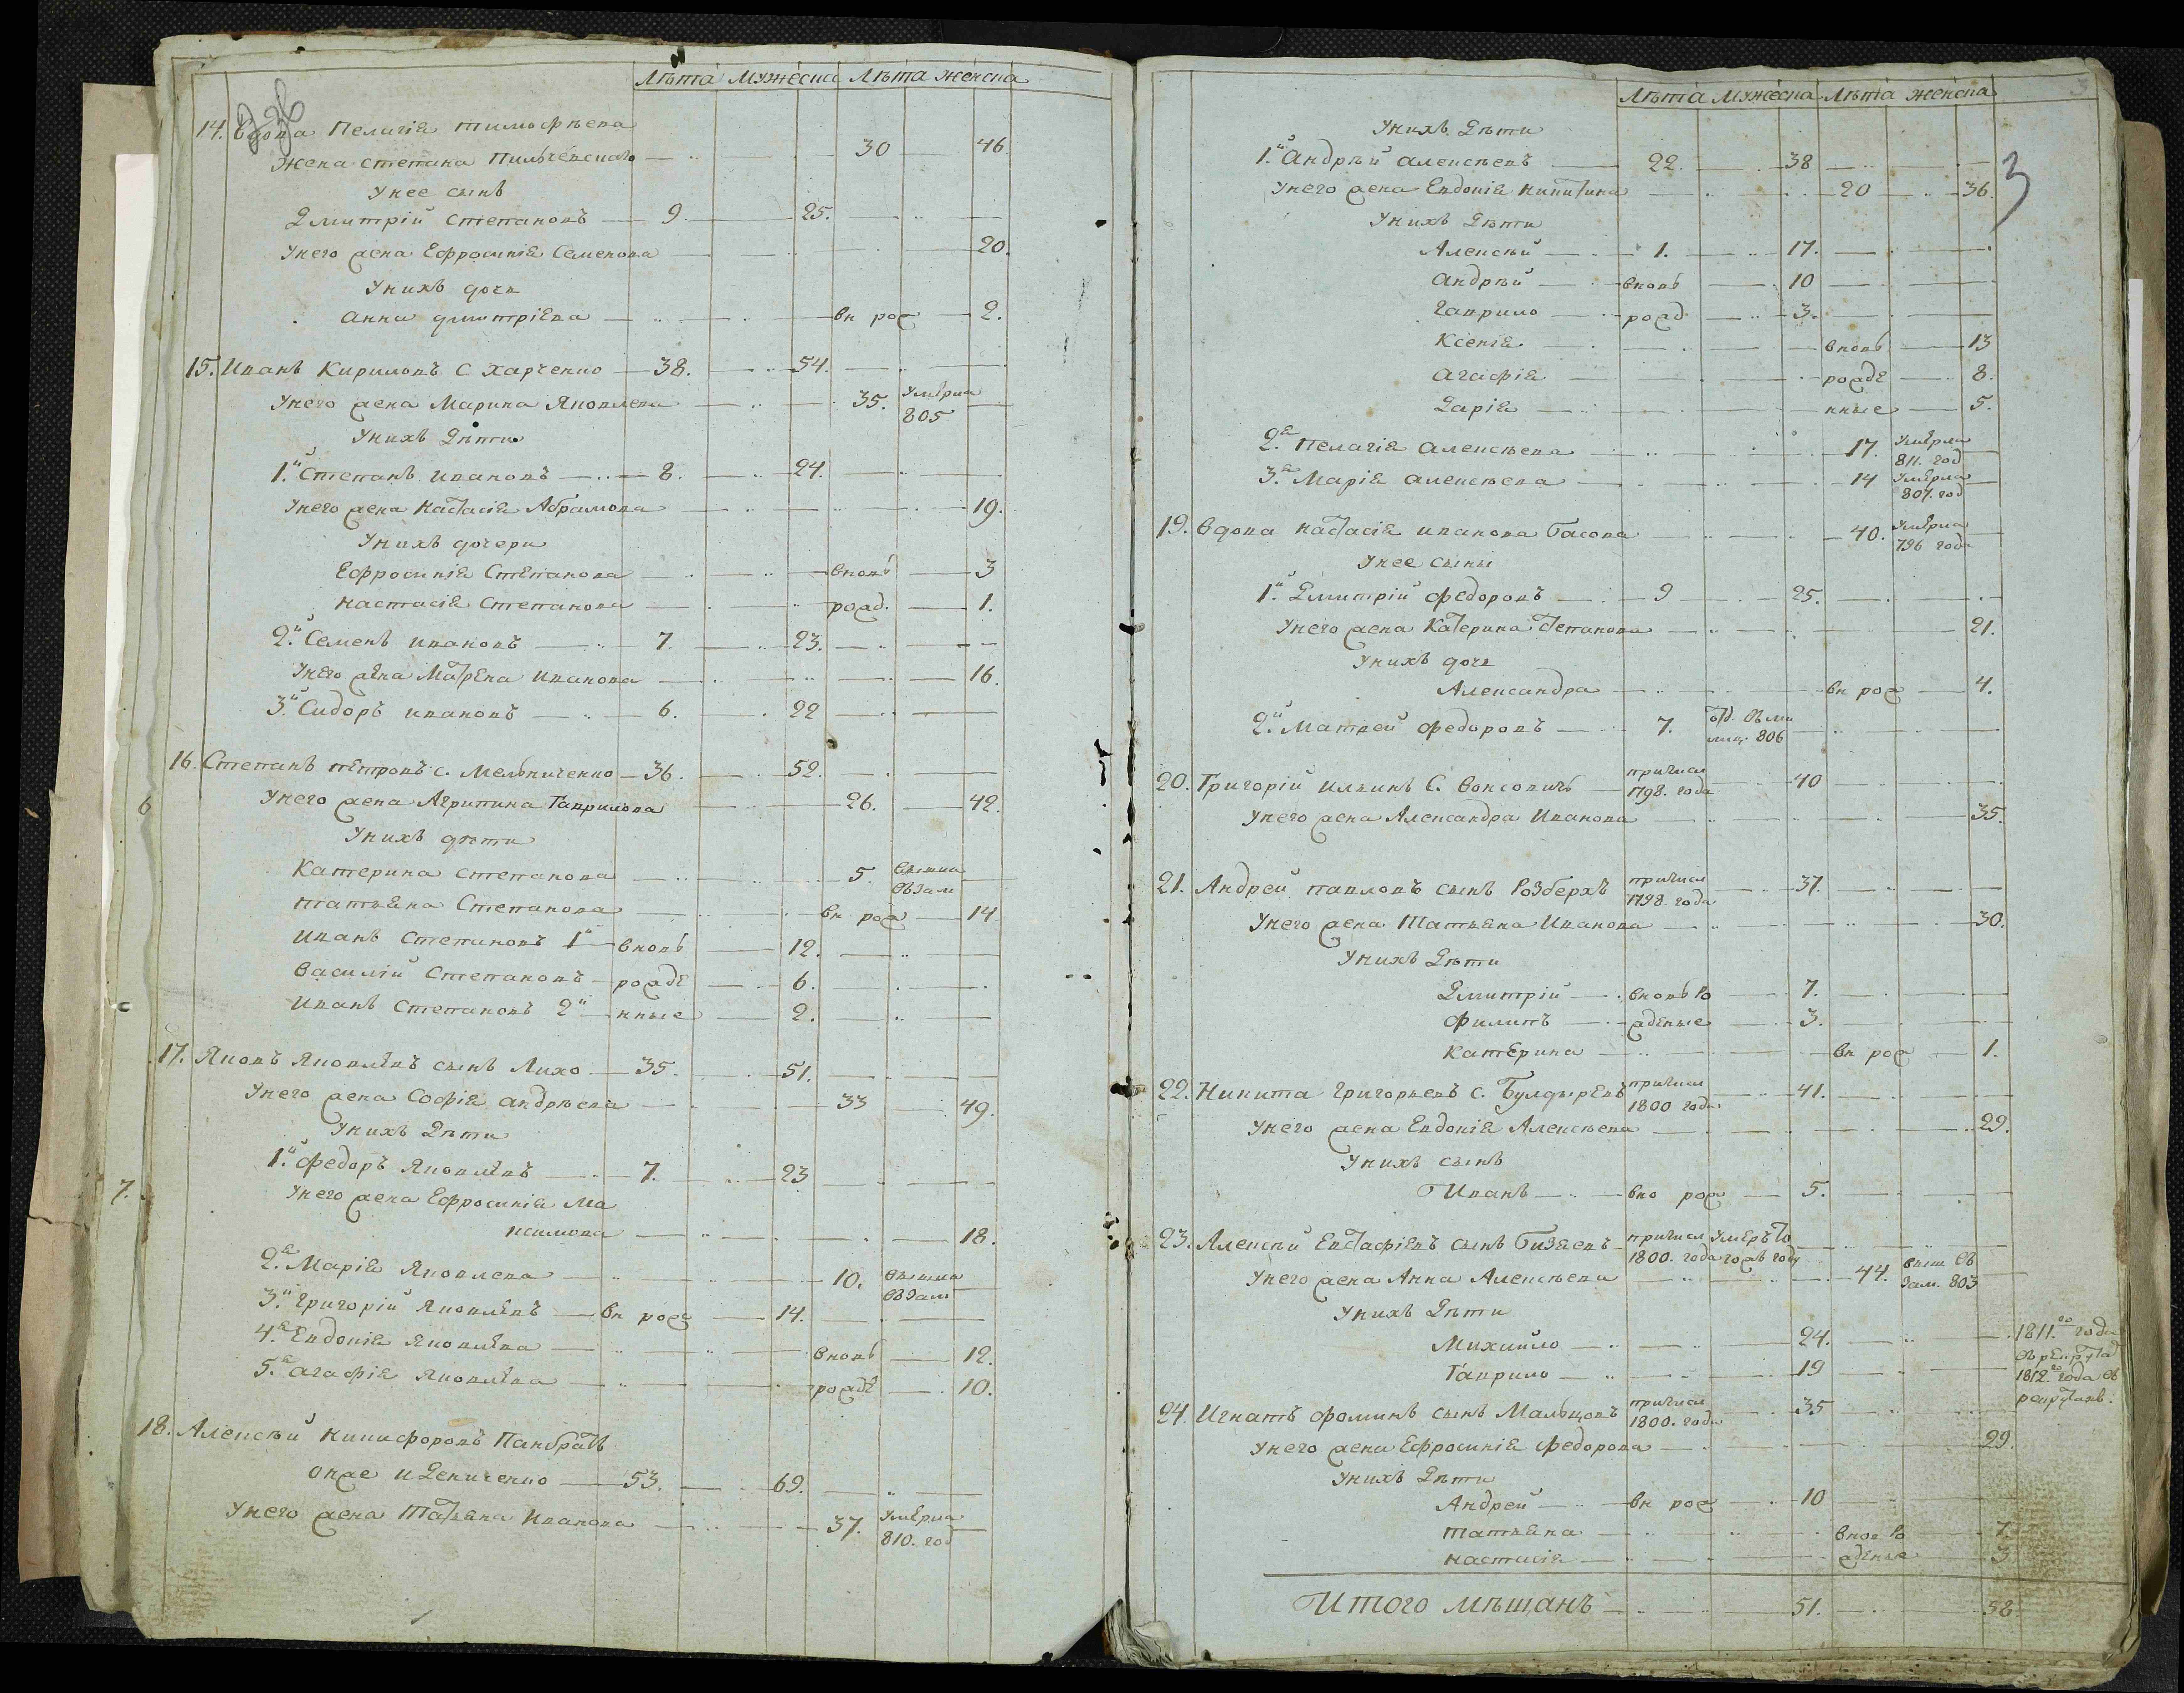 Лѣта Мужеска Лѣта женска
14. Вдова Пелагія тимофѣева
жена степана Пильчевскаго — 30 — 46.
У нее сынъ
Дмитрій Степановъ — 9 — 25.
У него жена Ефросинія Семенова — 20.
У нихъ дочь
Анна дмитріева — вн рож — 2.
15. Иванъ Кириловъ С Харченко — 38. — 54.
У него жена Марина Яковлева — 35. Умерла 805
У нихъ Дѣти
1.й Степанъ ивановъ — 8. — 24.
У него жена Настасія Абрамова — 19.
У нихъ дочери
Ефросинія Степанова — вновь — 3
Настасія Степанова — рожд. — 1.
2.й Семенъ ивановъ — 7. — 23.
У него жена Матрена иванова — 16.
3.й Сидоръ ивановъ — 6. — 22
16. Степанъ петровъ с. Мельниченко — 36. — 52.
6
У него жена Агрипина Гаврилова — 26. — 42.
У нихъ дѣти
Катерина степанова — 5. вышла въ зам
татьяна Степанова — вн рож — 14
Иванъ Степановъ 1й — вновь — 12.
Василій Степановъ — рожде — 6.
Иванъ Степановъ 2й — нные — 2.
17. Яковъ Яковлевъ сынъ Лихо — 35. — 51.
У него жена Софія андрѣева — 33 — 49.
У нихъ Дѣти
1.й Федоръ Яковлевъ — 7. — 23
7.
У него жена Ефросинія Ма
ксимова — 18.
2.я Марія Яковлева — 10. вышла въ зам
3.й Григорій Яковлевъ — вн рож — 14.
4.я Евдокія Яковлева — вновь — 12.
5.я агафія Яковлева — рожде — 10.
18. Алексѣй Никифоровъ Панбратъ
онже и Дениченко — 53. — 69.
У него жена Татьяна Иванова — 37. Умерла 810. год
Лѣта Мужеска Лѣта женска
3
У нихъ Дѣти
1.й Андрѣй алексѣевъ — 22. — 38
У него жена Евдокія Никитина — 20 — 36.
У нихъ Дѣти
Алексѣй — 1. — 17.
андрѣй — вновь — 10
Гаврило — рожд — 3.
Ксенія — вновь — 13
агафія — рожде — 8.
Дарія — нные — 5.
2.я Пелагія алексѣева — 17. Умерла 811. год
3.я Марія алексѣева — 14 Умерла 807. год
19. Вдова Настасія иванова Басова — 40. Умерла 796 года
У нее сыны
1.й Дмитрій федоровъ — 9 — 25.
У него жена Катерина степанова — 21.
У нихъ дочь
Александра — вн рож — 4.
2.й Матвей федоровъ — 7. 806
20. Григорій ильинъ С. Воксовичъ — причисл 1798. года — 40
У него жена Александра Иванова — 35.
21. Андрей павловъ сынъ Розберхъ причисл 1798. года — 37.
У него жена Татьяна Иванова — 30.
У нихъ Дѣти
Дмитрій — вновь ро — 7.
Филипъ — жденые — 3.
Катерина — вн рож — 1.
22. Никита григорьевъ с. Булдыревъ причисл 1800 года — 41.
У него жена Евдокія Алексѣева — 29.
У нихъ сынъ
Иванъ — вно рож — 5.
23. Алексѣй Евстафіевъ сынъ Бизяевъ причисл 1800. года Умеръ году
У него жена Анна Алексѣева — 44. выш въ зам. 803
У нихъ Дѣти
Михайло — 24. — 1811.го года въ рекрутъ
Гаврило — 19 — 1812.го года въ рекрутахъ.
24. Игнатъ фоминъ сынъ Мальцовъ причисл 1800. года — 35
У него жена Ефросинія федорова — 29.
У нихъ Дѣти
Андрей — вн рож — 10
татьяна — внов ро — 7.
настасія — жденые — 3
Итого мѣщанъ — 51. — 58